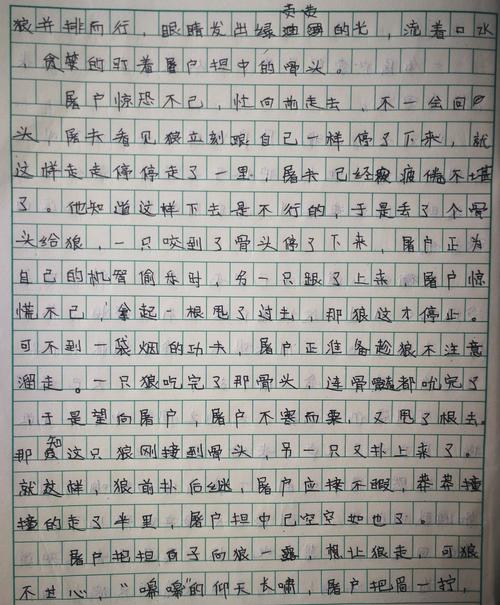 狼并排而行，眼睛发出绿油油的光，流着口水
贪婪的盯着屠户担中的骨头。
屠户惊恐不已，忙向前走去，不一会回
头，屠夫看见狼立刻跟自己一样停了下来，就
这样走走停停走了一里，屠夫已经疲惫不堪
了。他知道这样下去是不行的，于是丢了个骨
头给狼，一只咬到了骨头停了下来，屠户正为
自己的机智偷乐时，另一只跟了上来，屠户惊
慌不已，拿起一根甩了过去，那狼这才停止。
可不到一袋烟的功夫，屠户正准备趁狼不注意
溜走。一只狼吃完了那骨头，连骨髓都吮完了
，于是望向屠户，屠户不寒而粟，又甩了根去。
那知这只狼刚接到骨头，另一只又扑上来了。
就这样，狼前扑后继，屠户应接不暇，莽莽撞
撞的走了半里，屠户担中已空空如也了。
屠户把担子向狼一露，想让狼走，可狼
不过心，“嗥嗥”的仰天长啸，屠户把眉一拧，